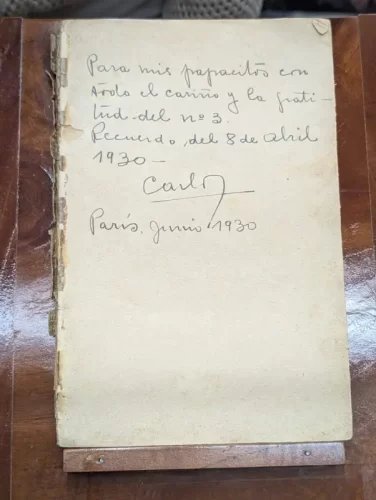 Para mis papacitos con
todo el cariño y la grati-
tud del nº 3.
Recuerdo del 8 de abril
1930-
Carlos
París, Junio 1930